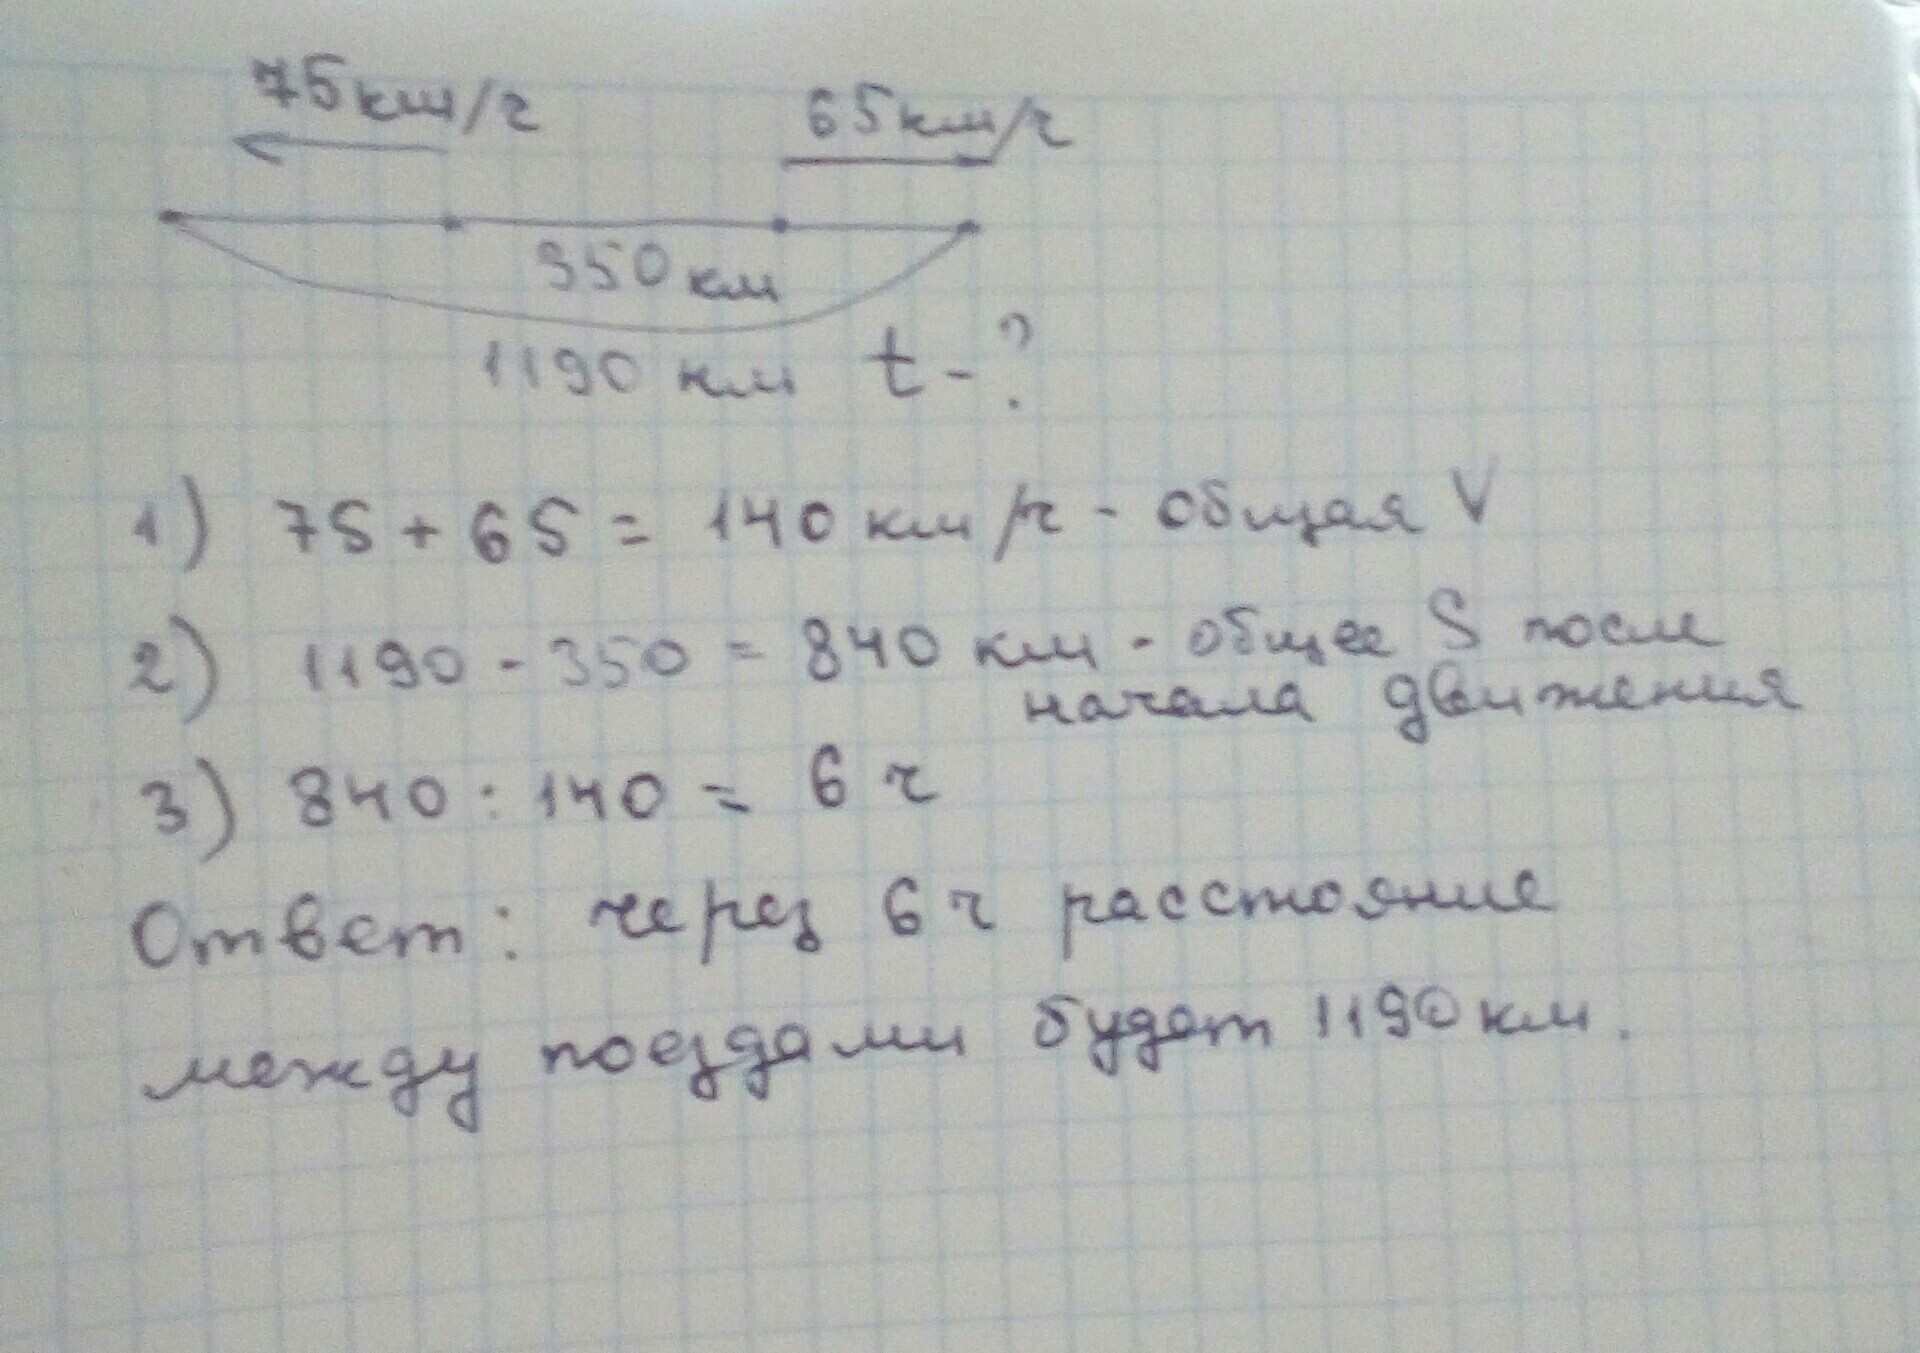 75км/ч 65км/ч
350км
1190 км t-?
1) 75 + 65 = 140 км/ч - общая V
2) 1190 - 350 = 840 км - общее S после
начала движения
3) 840 : 140 = 6 ч
Ответ: через 6 ч расстояние
между поездами будет 1190км.